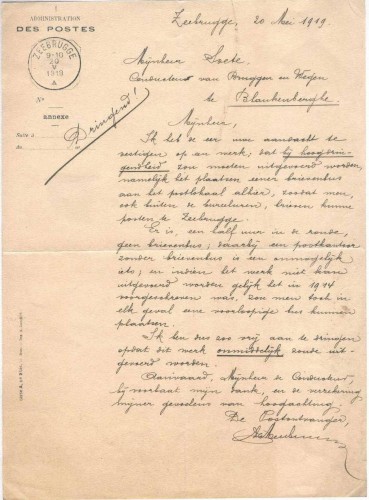 ADMINISTRATION
DES POSTES
ZEEBRUGGE
9-10
20
V
1919
A
No
ANNEXE
Suite à
du
Dringend!
Zeebrugge, 20 Mei 1919.
Mijnheer Soete
Conducteur van Bruggen en Wegen
te Blankenberghe.
Mijnheer,
Ik heb de eer uw aandacht te
vestigen op een werk, dat bij hoogdrin-
gendheid zou moeten uitgevoerd worden,
namelijk het plaatsen eener brievenbus
aan het postlokaal alhier, zoodat men,
ook buiten de bureeluren, brieven kunne
posten te Zeebrugge.
Er is, een half uur in de ronde,
geen brievenbus; daarbij een postkantoor
zonder brievenbus is een onmogelijk
iets; en indien het werk niet kan
uitgevoerd worden gelijk het in 1914
voorgeschreven was, zou men toch in
elk geval eene voorloopige bus kunnen
plaatsen.
Ik ben dus zoo vrij aan te dringen
opdat dit werk onmiddelijk zoude uit-
gevoerd worden.
Aanvaard, Mijnheer de Conducteur,
bij voorbaat mijn dank, en de verzekering
mijner gevoelens van hoogachting.
De Postontvanger,